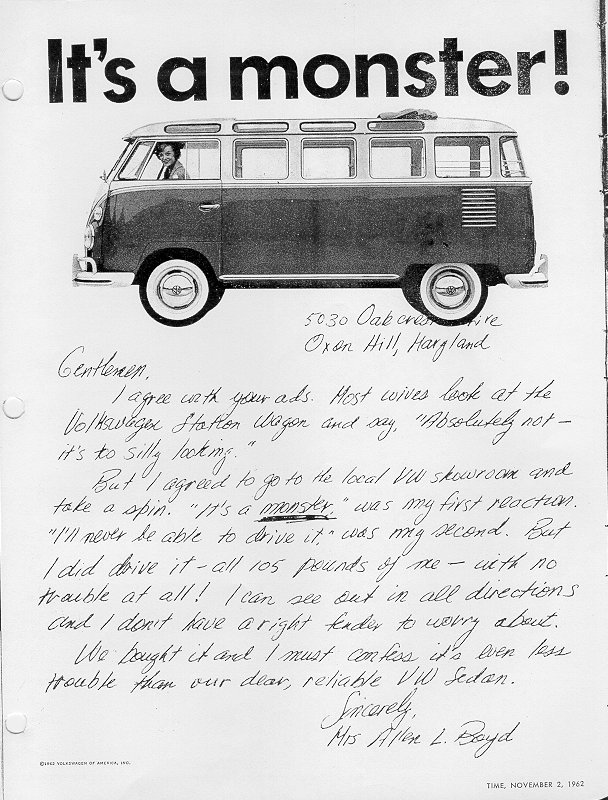 It's a monster!
5030 Oakcrest Drive
Oxon Hill, Maryland
Gentlemen,
I agree with your ads. Most wives look at the
Volkswagen Station Wagon and say, "Absolutely not –
it's too silly looking."
But I agreed to go to the local VW showroom and
take a spin. "It's a monster," was my first reaction.
"I'll never be able to drive it," was my second. But
I did drive it – all 105 pounds of me – with no
trouble at all! I can see out in all directions
and I don't have a right fender to worry about.
We bought it and I must confess it's even less
trouble than our dear, reliable VW Sedan.
Sincerely,
Mrs Allen L. Boyd
©1962 VOLKSWAGEN OF AMERICA, INC.
TIME, NOVEMBER 2, 1962